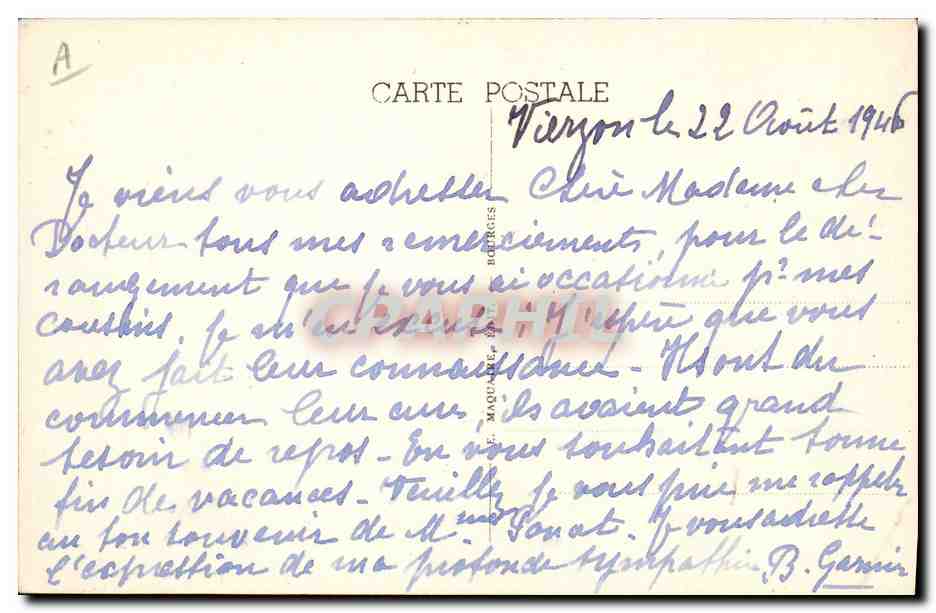 A
CARTE POSTALE
Vierzon le 22 Août 1946
Je viens vous adresser Chère Madame cher
Docteur tous mes remerciements, pour le dé-
rangement que je vous ai occasionné pr mes
cousins, je m'en excuse. J'espère que vous
avez fait leur connaissance - Ils ont du
commencer leur cure, ils avaient grand
besoin de repos - En vous souhaitant bonne
fin de vacances - Veuillez je vous prie me rappeler
au bon souvenir de Mme. Je vous adresse
l'expression de ma profonde sympathie, B. Garnier
E. MAQUAIRE, EDIT. BOURGES
CPAPHIL